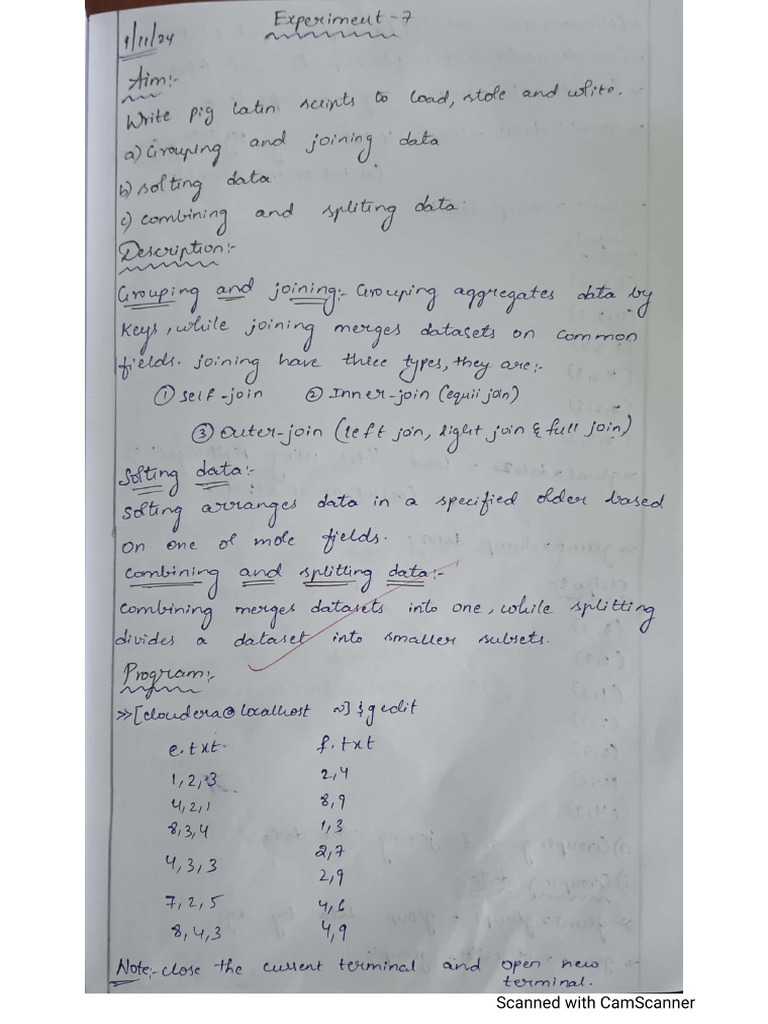 Experiment-7
1/11/24
Aim:-
Write pig latin scripts to load, store and write.
a) Grouping and joining data
b) sorting data
c) combining and spliting data.
Description:-
Grouping and joining:- Grouping aggregates data by
keys, while joining merges datasets on common
fields. joining have three types, they are:-
① self-join ② Inner-join (equii join)
③ Outer-join (left join, right join & full join)
Sorting data:-
Sorting arranges data in a specified order based
on one or more fields.
Combining and splitting data:-
Combining merges datasets into one, while splitting
divides a dataset into smaller subsets.
Program:-
>>[cloudera@localhost ~]$gedit
e.txt f.txt
1,2,3 2,4
4,2,1 8,9
8,3,4 1,3
4,3,3 2,7
2,9
7,2,5 4,6
8,4,3 4,9
Note:- close the current terminal and open new
terminal.
Scanned with CamScanner